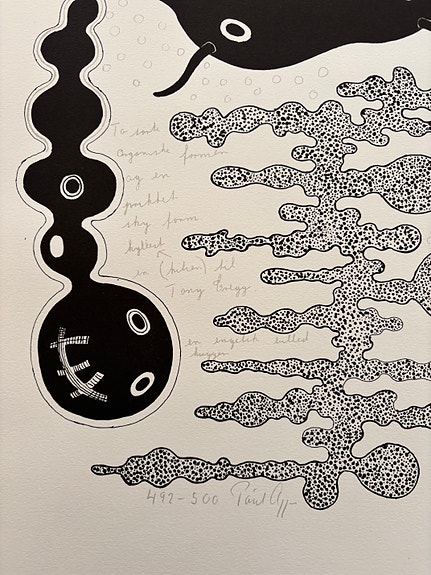 To sorte
organiske former
og en
prikket
sky form
hyllest
en (hilsen) til
Tony Cragg
en engelsk billed
hugger
492-500